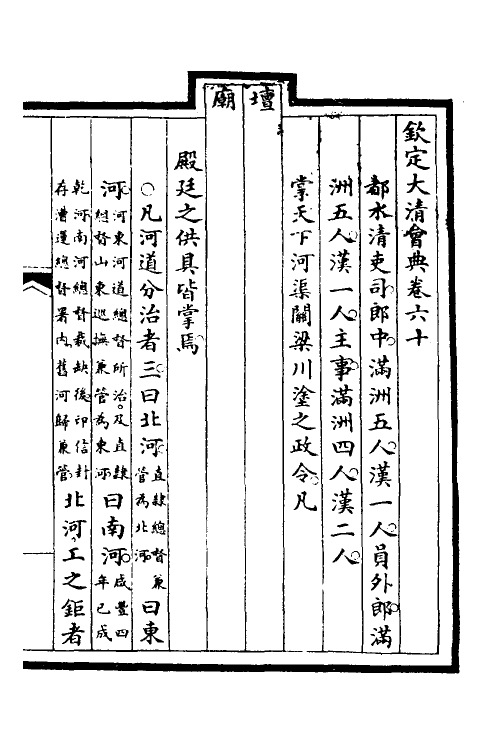 欽定大清會典卷六十
都水清吏司郎中滿洲五人漢一人員外郎滿
洲五人漢一人主事滿洲四人漢二人
掌天下河渠關梁川塗之政令凡
壇
廟
殿廷之供具皆掌焉
○凡河道分治者三曰北河直隸總督兼管為北河曰東
河河東河道總督所治及直隸總督山東巡撫兼管為東河曰南河咸豐四年已成
乾河南河總督裁缺後印信封存漕運總督署內舊河歸兼管北河工之鉅者